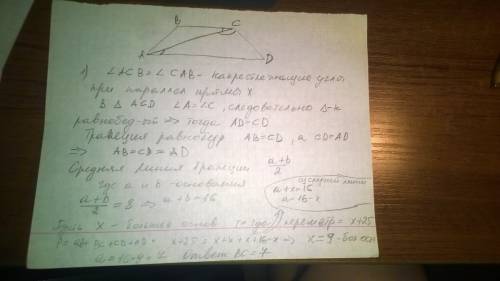 B C
A D
1) ∠ACB = ∠CAB - накрестлежащие углы
при параллел прямых X
В Δ ACD ∠A=∠C, следовательно Δ-к
равнобед-ый => тогда AD=CD
Трапеция равнобедр AB=CD, а CD=AD
=> AB=CD=AD
Средняя линия трапеции a+b/2
где a и b - основания
a+b/2 = 8 => a+b=16
из средней линии
a+x=16
a=16-x
Пусть x - большее основ тогда периметр = x+25
P = AB+BC+CD+AD = x+25 = x+x+x+16-x => x=9 - бол осн
a=16-9=7 Ответ BC=7